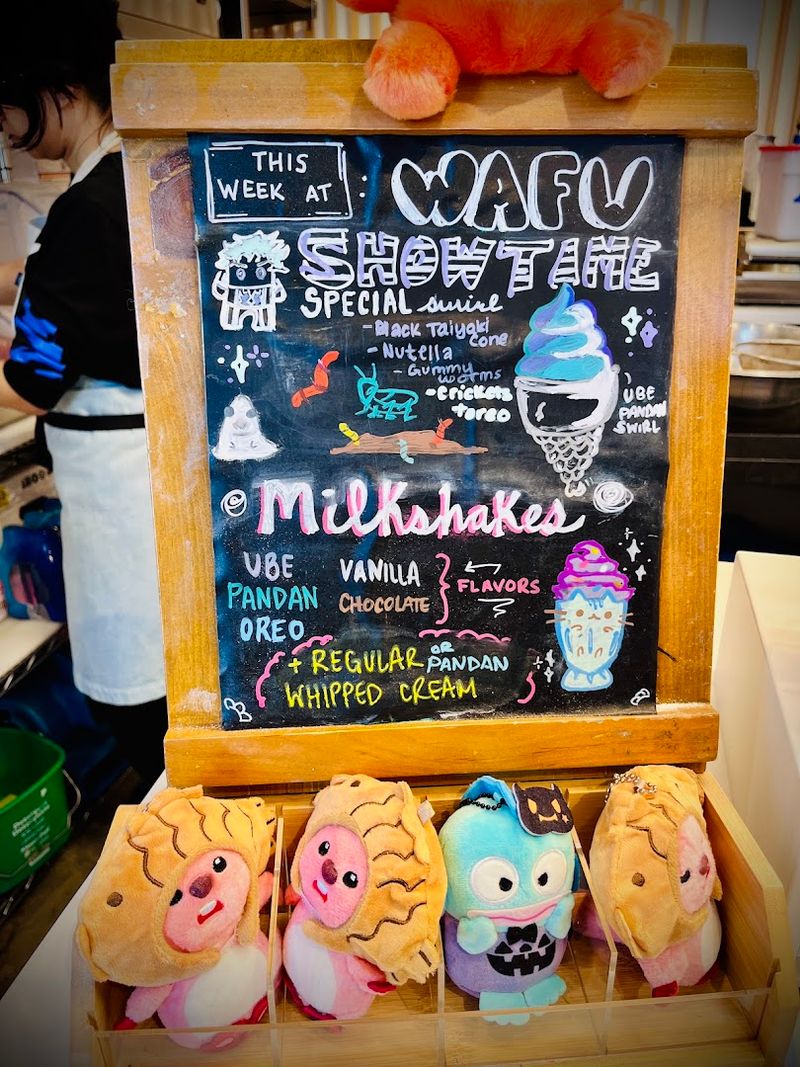 THIS
WEEK AT :
WAFU
SHOWTIME
SPECIAL swirl
- Black Taiyaki
cone
- Nutella
- Gummy
worms
- crickets
+oreo
UBE
PANDAN
SWIRL
Milkshakes
UBE VANILLA
PANDAN CHOCOLATE
OREO
FLAVORS
+ REGULAR OR PANDAN
WHIPPED CREAM